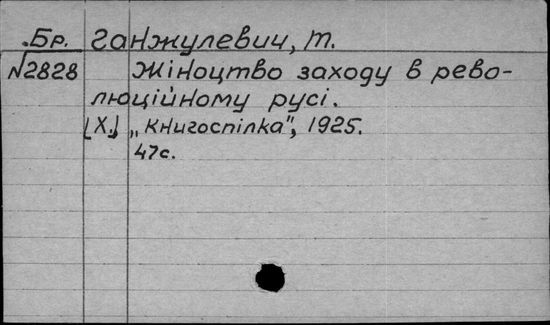 Бр. Ганжулевич, Т.
№2828 Жіноцтво заходу в рево-
люційному русі.
[Х.] „Книгоспілка", 1925.
47с.